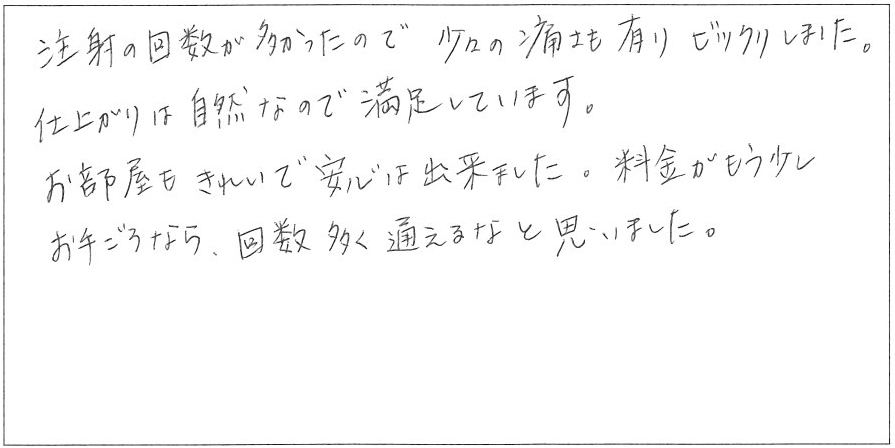 注射の回数が多かったので 少々の痛さも有り ビックリしました。
仕上がりは自然なので満足しています。
お部屋もきれいで安心は出来ました。料金がもう少し
お手ごろなら、回数多く通えるなと思いました。